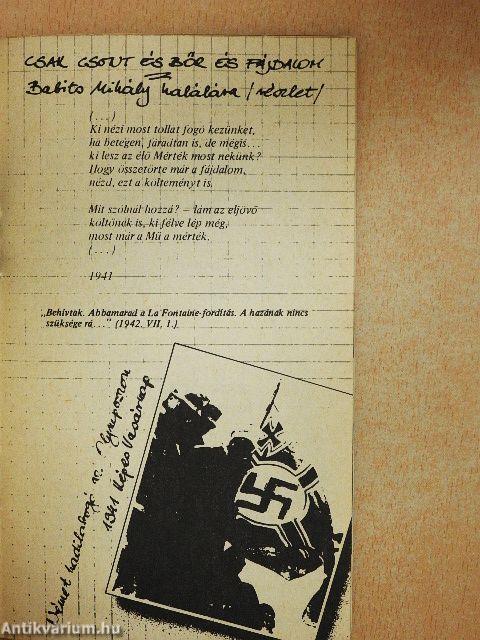 CSAK CSONT ÉS BŐR ÉS FÁJDALOM
Babits Mihály halálára /részlet/
(...)
Ki nézi most tollat fogó kezünket,
ha betegen, fáradtan is, de mégis...
ki lesz az élő Mérték most nekünk?
Hogy összetörte már a fájdalom,
nézd, ezt a költeményt is.
Mit szólnál hozzá? – lám az eljövő
költőnek is, ki félve lép még,
most már a Mű a mérték.
(...)
1941
„Behívtak. Abbamarad a La Fontaine-fordítás. A hazának nincs
szüksége rá..." (1942. VII, 1.)
Német
1941 Képes Vasárnap
Antikvarium.hu